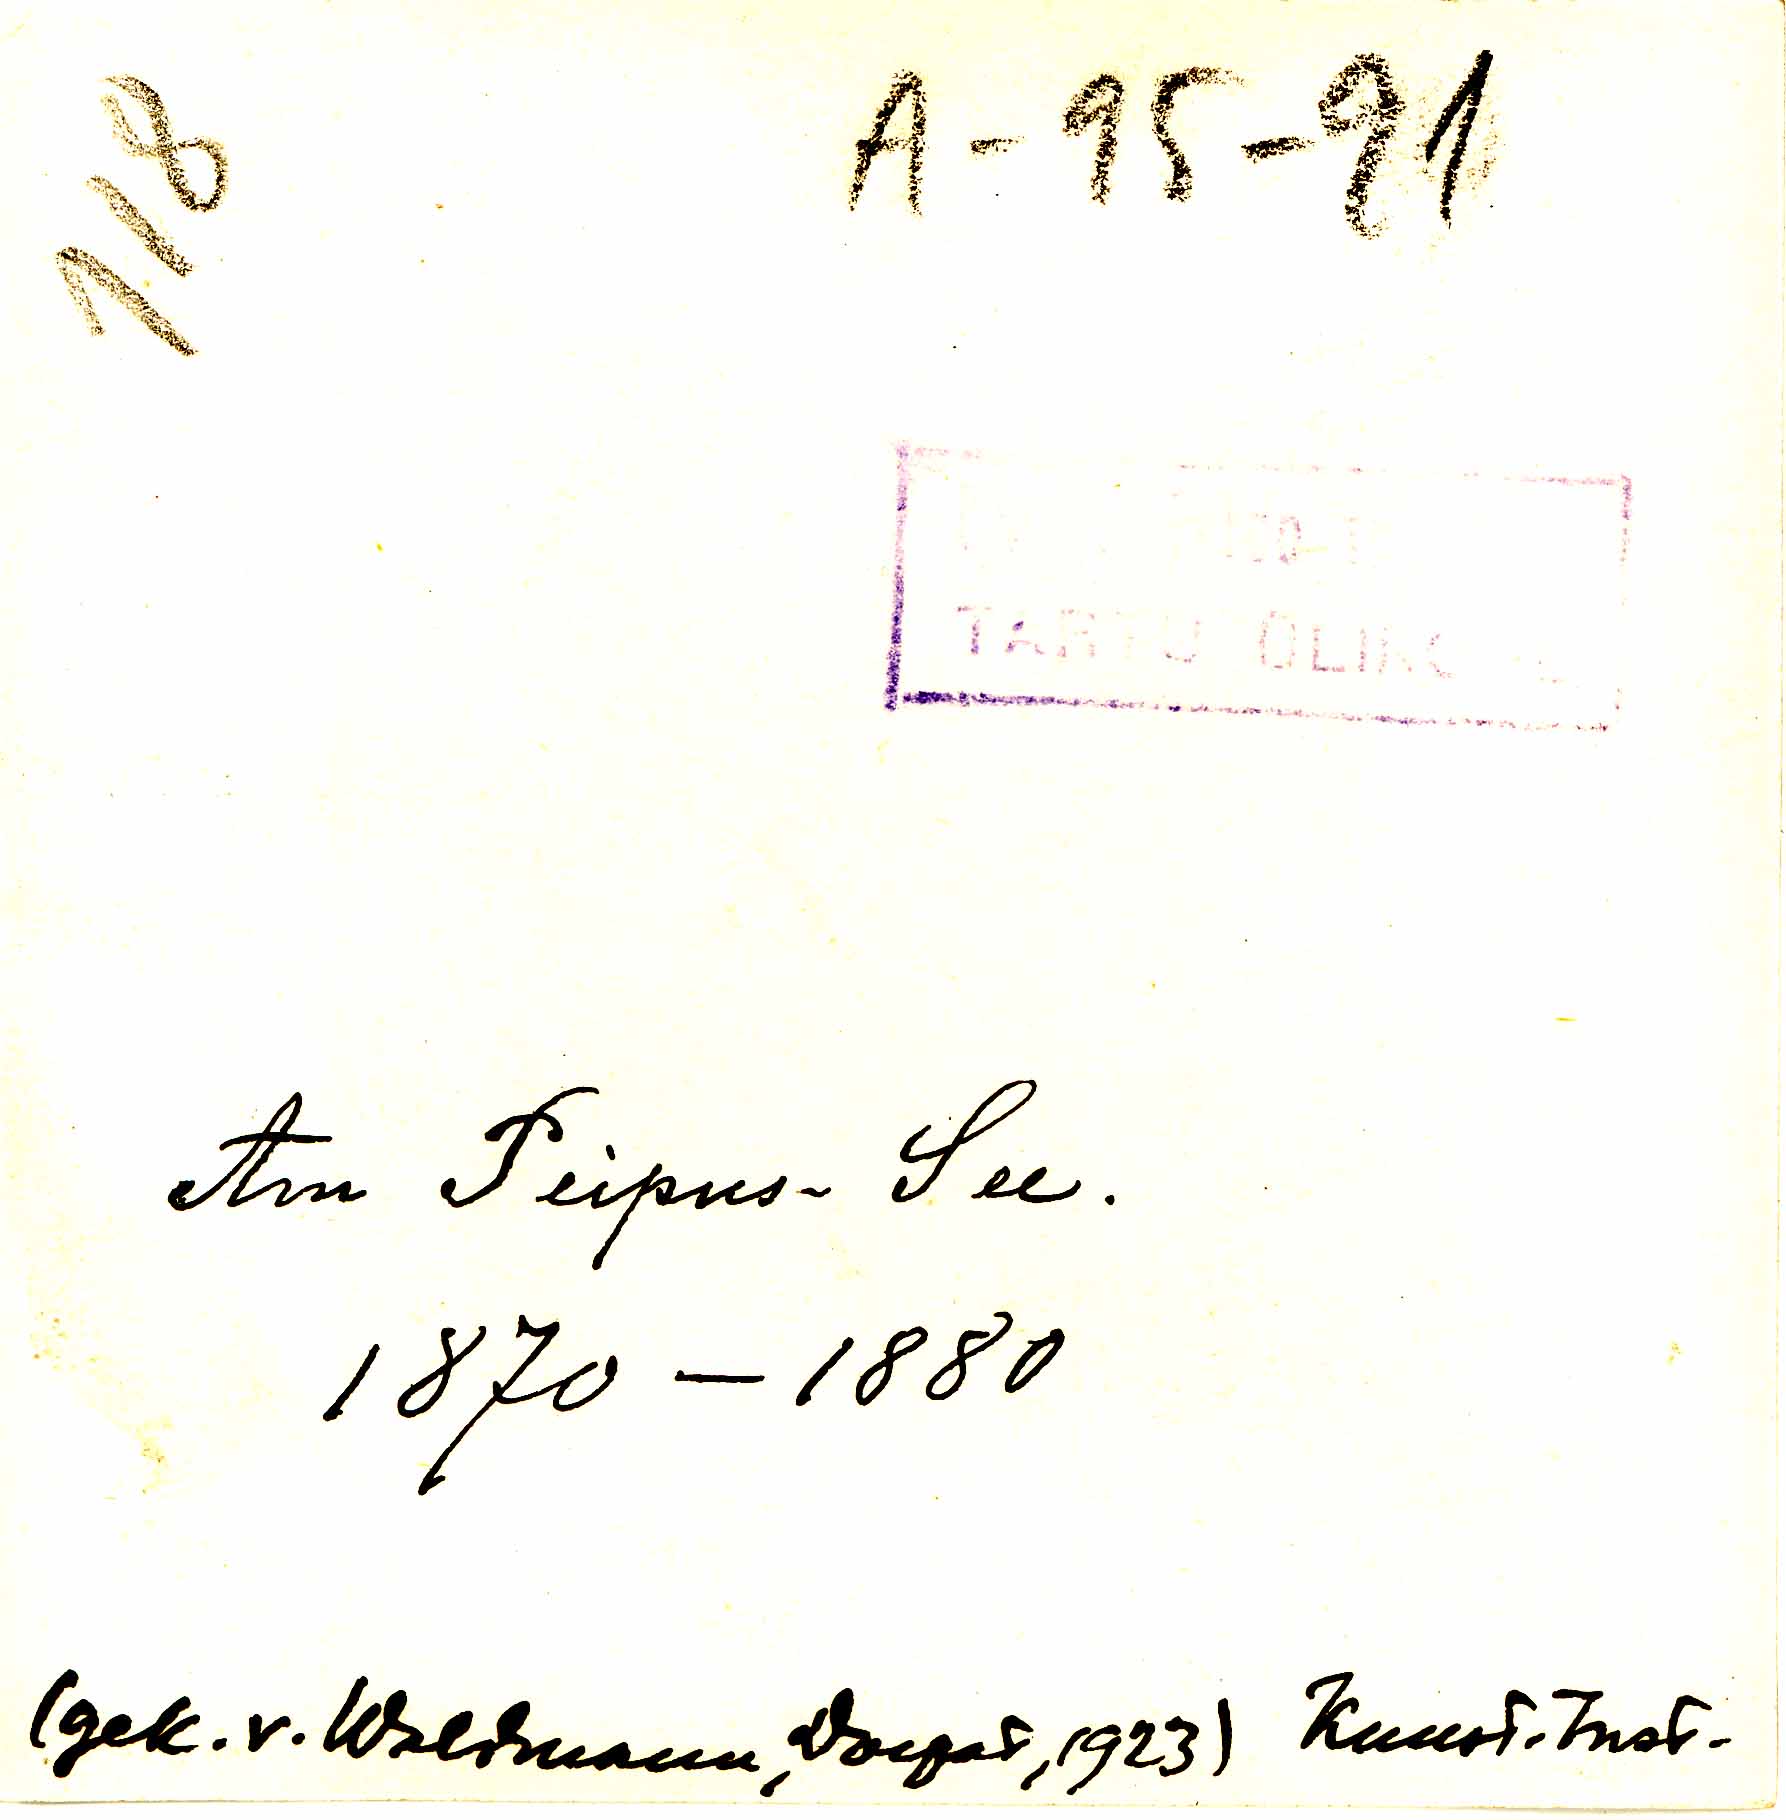 118
A-95-91
TARTU
Am Peipus-See.
1870 — 1880
(gek. v. Waldmann, Dorpat, 1923) Kunst. Inst.